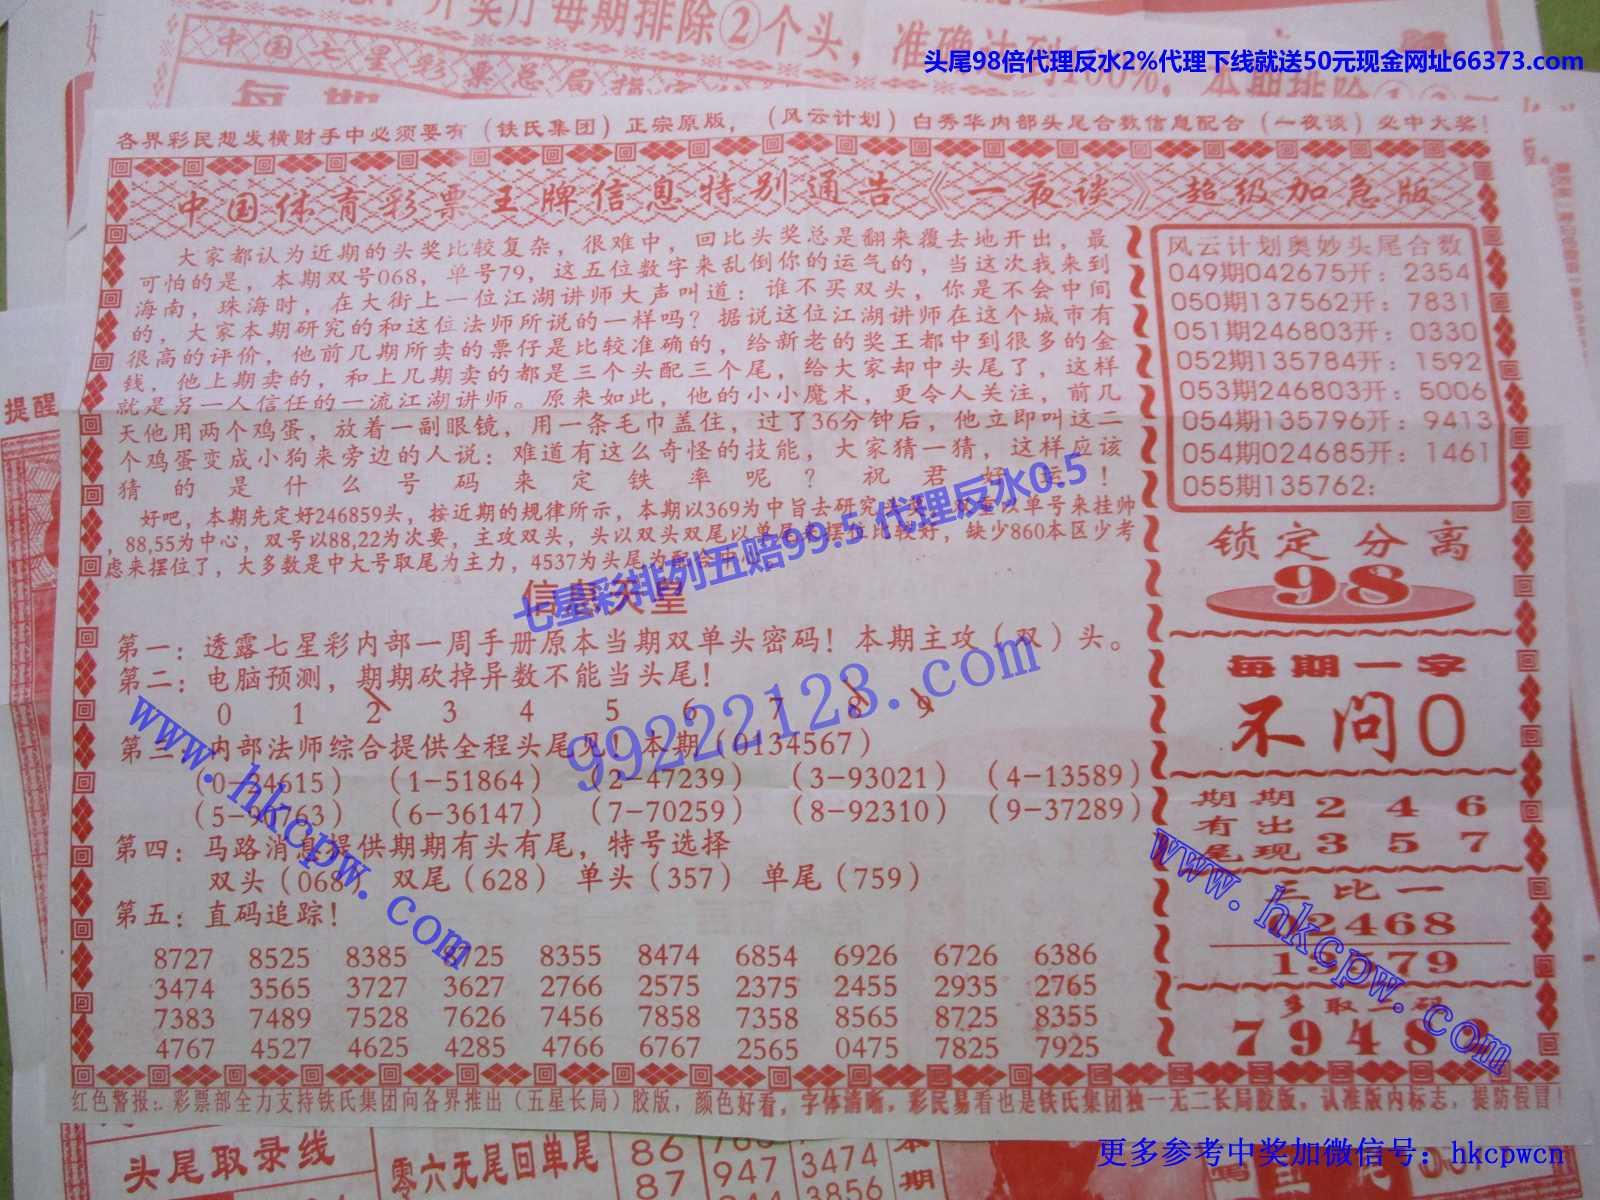 开奖厅每期排除②个头,准确达到100%,本期排除
中国七星彩票总局指定
每期
头尾98倍代理反水2%代理下线就送50元现金网址66373.com
各界彩民想发横财手中必须要有（铁氏集团）正宗原版，（风云计划）白秀华内部头尾合数信息配合（一夜谈）必中大奖！
中国体育彩票王牌信息特别通告《一夜谈》超级加急版
大家都认为近期的头奖比较复杂，很难中，回比头奖总是翻来覆去地开出，最
可怕的是，本期双号068，单号79，这五位数字来乱倒你的运气的，当这次我来到
海南，珠海时，在大街上一位江湖讲师大声叫道：谁不买双头，你是不会中间
的，大家本期研究的和这位法师所说的一样吗？据说这位江湖讲师在这个城市有
很高的评价，他前几期所卖的票仔是比较准确的，给新老的奖王都中到很多的金
钱，他上期卖的，和上几期卖的都是三个头配三个尾，给大家却中头尾了，这样
就是另一人信任的一流江湖讲师。原来如此，他的小小魔术，更令人关注，前几
天他用两个鸡蛋，放着一副眼镜，用一条毛巾盖住，过了36分钟后，他立即叫这二
个鸡蛋变成小狗来旁边的人说：难道有这么奇怪的技能，大家猜一猜，这样应该
猜的是什么号码来定铁率呢？祝君好运！
好吧，本期先定好246859头，按近期的规律所示，本期以369为中旨去研究头尾，双重以单号来挂帅
，88,55为中心，双号以88,22为次要，主攻双头，头以双头双尾以单尾来摆位比较好，缺少860本区少考
虑来摆位了，大多数是中大号取尾为主力，4537为头尾为配合中心
七星彩排列五赔99.5 代理反水0.5
信息天皇
第一：透露七星彩内部一周手册原本当期双单头密码！本期主攻（双）头。
第二：电脑预测，期期砍掉异数不能当头尾！
0 1 2 3 4 5 6 7 8 9
第三：内部法师综合提供全程头尾见！本期（0134567）
（0-24615）（1-51864）（2-47239）（3-93021）（4-13589）
（5-90763）（6-36147）（7-70259）（8-92310）（9-37289）
第四：马路消息提供期期有头有尾，特号选择
双头（068）双尾（628）单头（357）单尾（759）
第五：直码追踪！
8727 8525 8385 8725 8355 8474 6854 6926 6726 6386
3474 3565 3727 3627 2766 2575 2375 2455 2935 2765
7383 7489 7528 7626 7456 7858 7358 8565 8725 8355
4767 4527 4625 4285 4766 6767 2565 0475 7825 7925
99222123.com
www.hkcpw.com
风云计划奥妙头尾合数
049期042675开：2354
050期137562开：7831
051期246803开：0330
052期135784开：1592
053期246803开：5006
054期135796开：9413
054期024685开：1461
055期135762：
锁定分离
98
每期一字
不问0
期期有出尾现
2 4 6
3 5 7
三比一
02468
13579
多取二码
7948
www.hkcpw.com
红色警报：彩票部全力支持铁氏集团向各界推出（五星长局）胶版，颜色好看，字体清晰，彩民易看也是铁氏集团独一无二长局胶版，认准版内标志，提防假冒！
提醒
头尾取录线
零六无尾回单尾
86
87
947
3474
3856
本期
更多参考中奖加微信号：hkcpwcn